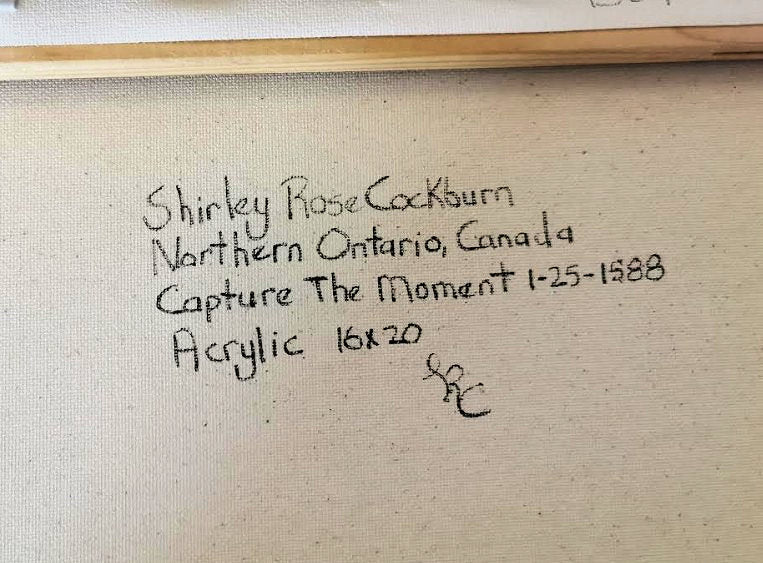 Shirley Rose Cockburn
Northern Ontario, Canada
Capture The Moment 1-25-1588
Acrylic 16x20
SRC